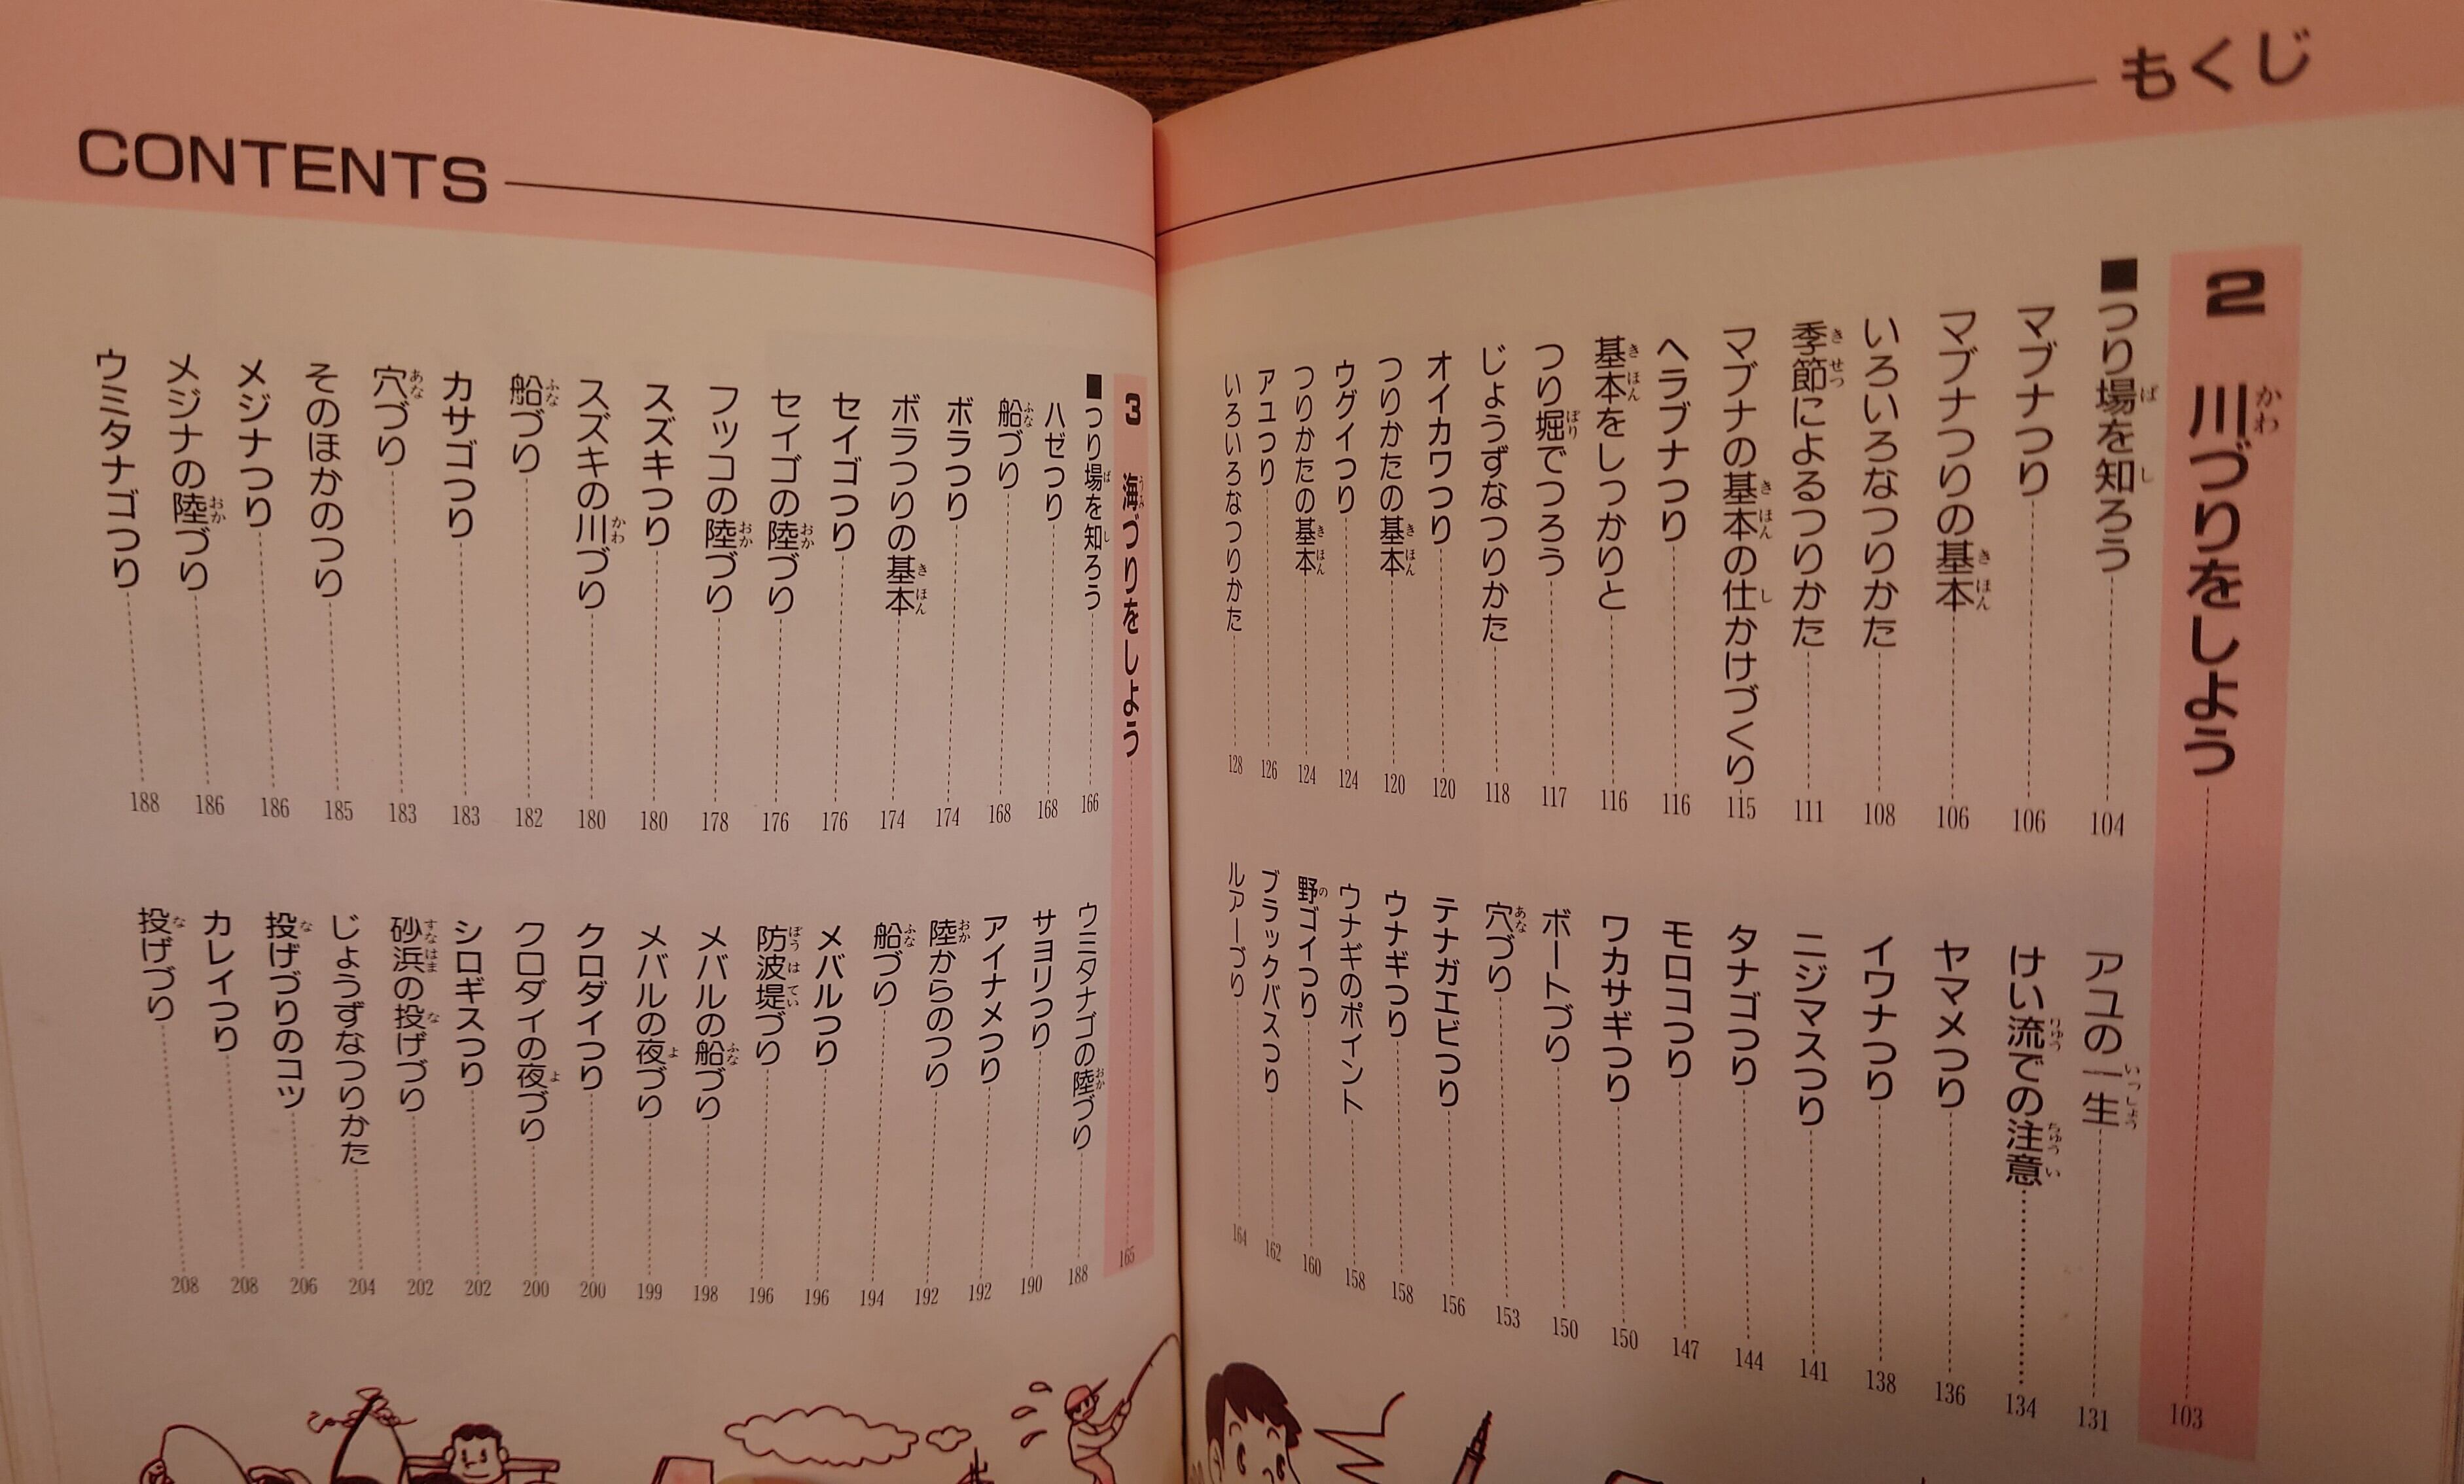 もくじ
2 川づりをしよう 103
■つり場を知ろう 104
マブナつり 106
マブナつりの基本 106
いろいろなつりかた 108
季節によるつりかた 111
マブナの基本の仕かけづくり 115
ヘラブナつり 116
基本をしっかりと 116
つり堀でつろう 117
じょうずなつりかた 118
オイカワつり 120
つりかたの基本 120
ウグイつり 124
つりかたの基本 124
アユつり 126
いろいろなつりかた 128
アユの一生 131
けい流での注意 134
ヤマメつり 136
イワナつり 138
ニジマスつり 141
タナゴつり 144
モロコつり 147
ワカサギつり 150
ボートづり 150
穴づり 153
テナガエビつり 156
ウナギつり 158
ウナギのポイント 158
野ゴイつり 160
ブラックバスつり 162
ルアーづり 164
CONTENTS
3 海づりをしよう 165
■つり場を知ろう 166
ハゼつり 168
船づり 168
ボラつり 174
ボラつりの基本 174
セイゴつり 176
セイゴの陸づり 176
フッコの陸づり 178
スズキつり 180
スズキの川づり 180
船づり 182
カサゴつり 183
穴づり 183
そのほかのつり 185
メジナつり 186
メジナの陸づり 186
ウミタナゴつり 188
ウミタナゴの陸づり 188
サヨリつり 190
アイナメつり 192
陸からのつり 192
船づり 194
メバルつり 196
防波堤づり 196
メバルの船づり 198
メバルの夜づり 199
クロダイつり 200
クロダイの夜づり 200
シロギスつり 202
砂浜の投げづり 202
じょうずなつりかた 204
投げづりのコツ 206
カレイつり 208
投げづり 208